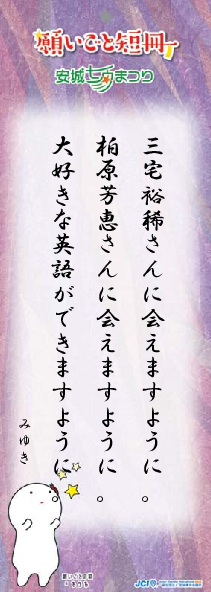 願いごと短冊
安城七夕まつり
三宅裕稀さんに会えますように。
柏原芳恵さんに会えますように。
大好きな英語ができますように
みゆき
願いごと短冊
JCI